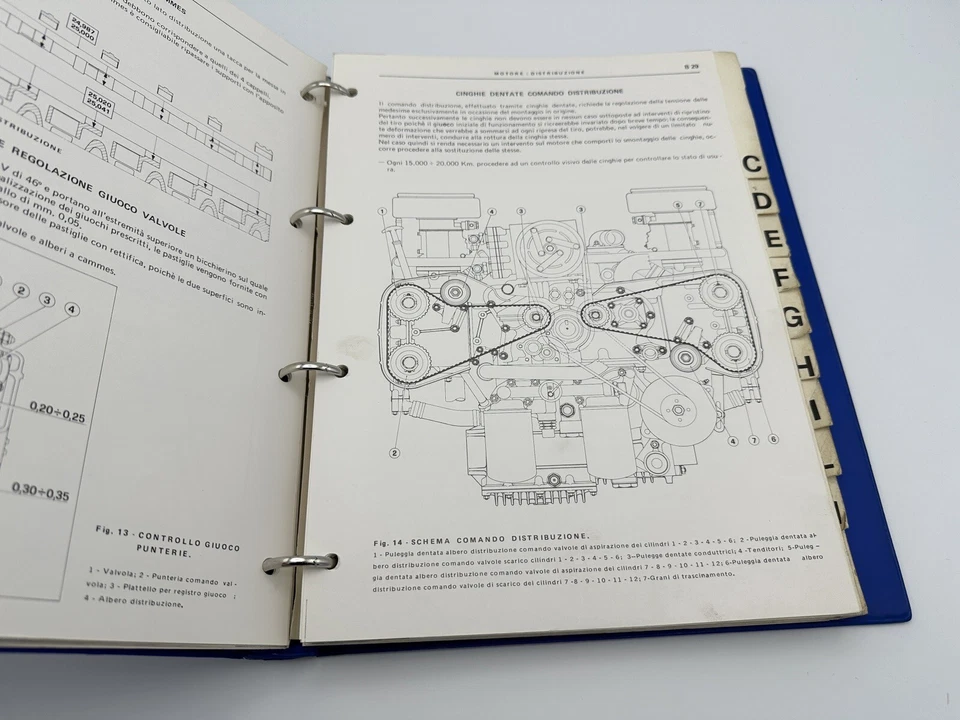 24,987
25,000
25,020
25,041
REGOLAZIONE GIUOCO VALVOLE
V di 46° e portano all'estremità superiore un bicchierino sul quale
dei giuochi prescritti, le pastiglie vengono fornite con
di mm. 0,05.
delle pastiglie con rettifica, poichè le due superfici sono in-
valvole e alberi a cammes.
2
3
4
0,20÷0,25
0,30÷0,35
Fig. 13 - CONTROLLO GIUOCO
PUNTERIE.
1 - Valvola; 2 - Punteria comando val-
vola; 3 - Piattello per registro giuoco ;
4 - Albero distribuzione.
MOTORE : DISTRIBUZIONE
B 29
CINGHIE DENTATE COMANDO DISTRIBUZIONE
Il comando distribuzione, effettuato tramite cinghie dentate, richiede la regolazione della tensione delle
medesime esclusivamente in occasione del montaggio in origine.
Pertanto successivamente le cinghie non devono essere in nessun caso sottoposte ad interventi di ripristino
del tiro poichè il giuoco iniziale di funzionamento si ricreerebbe invariato dopo breve tempo; la conseguen-
te deformazione che verrebbe a sommarsi ad ogni ripresa del tiro, potrebbe, nel volgere di un limitato nu-
mero di interventi, condurre alla rottura della cinghia stessa.
Nel caso quindi si renda necessario un intervento sul motore che comporti lo smontaggio delle cinghie, oc-
corre procedere alla sostituzione delle stesse.
— Ogni 15.000 ÷ 20.000 Km. procedere ad un controllo visivo delle cinghie per controllare lo stato di usu-
ra.
1
4
3
3
5
7
2
4
7
6
Fig. 14 - SCHEMA COMANDO DISTRIBUZIONE.
1 - Puleggia dentata albero distribuzione comando valvole di aspirazione dei cilindri 1 - 2 - 3 - 4 - 5 - 6; 2 -Puleggia dentata al-
bero distribuzione comando valvole scarico cilindri 1 - 2 - 3 - 4 - 5 - 6; 3-Pulegge dentate conduttrici; 4 -Tenditori; 5-Puleg -
gia dentata albero distribuzione comando valvole di aspirazione dei cilindri 7 -8 - 9 - 10 - 11 - 12; 6-Puleggia dentata albero
distribuzione comando valvole di scarico dei cilindri 7 -8 - 9 - 10 - 11 - 12; 7-Grani di trascinamento.
C
D
E
F
G
H
I